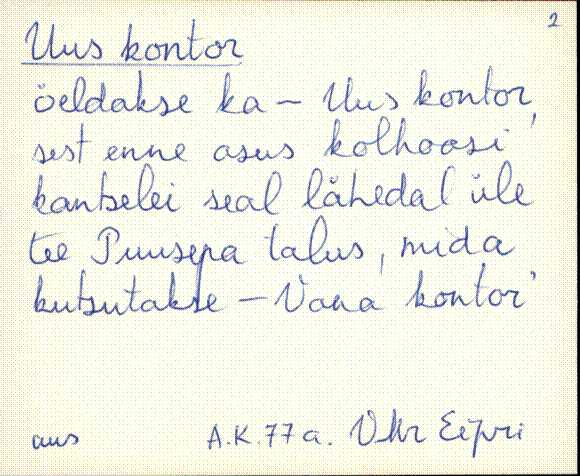 2
Uus kontor
öeldakse ka – Uus kontor,
sest enne asus kolhoosi
kantselei seal lähedal üle
tee Puusepa talus, mida
kutsutakse – Vana kontor'
aus A.K. 77 a. VMr Eipri